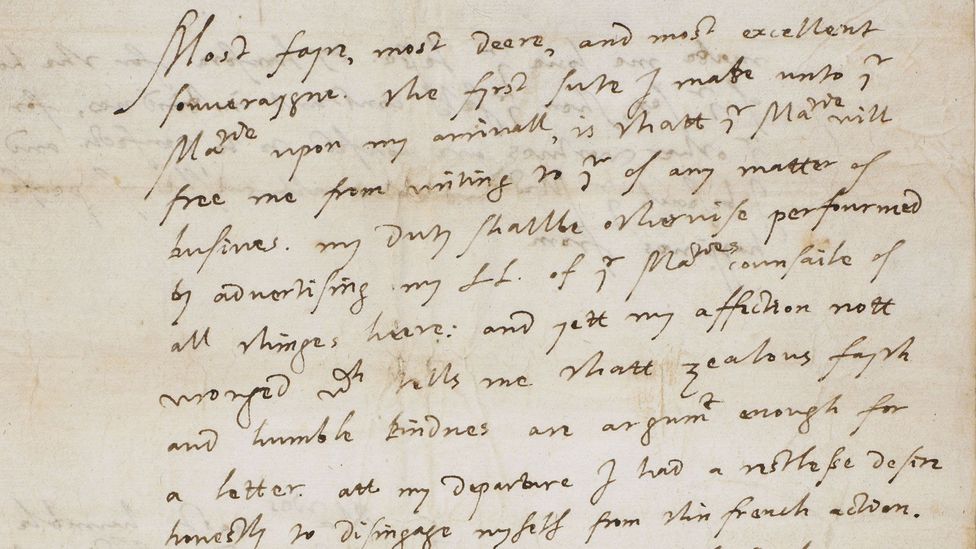 Most fayre, most deere, and most excellent
soveraygne. the fyrst sute I make unto yr
Matie upon my arrivall, is thatt yr Matie will
free me from writing to yr of any matter of
busines. my duty shallbe otherwise perfourmed
by advertising my LL. of yr Maties counsaile of
all thinges heere: and yett my affection nott
wronged wch tells me thatt zealous fayth
and humble kindnes are argumt enough for
a letter. att my departure I had a restlesse desire
honestly to disingage myself from this french action.